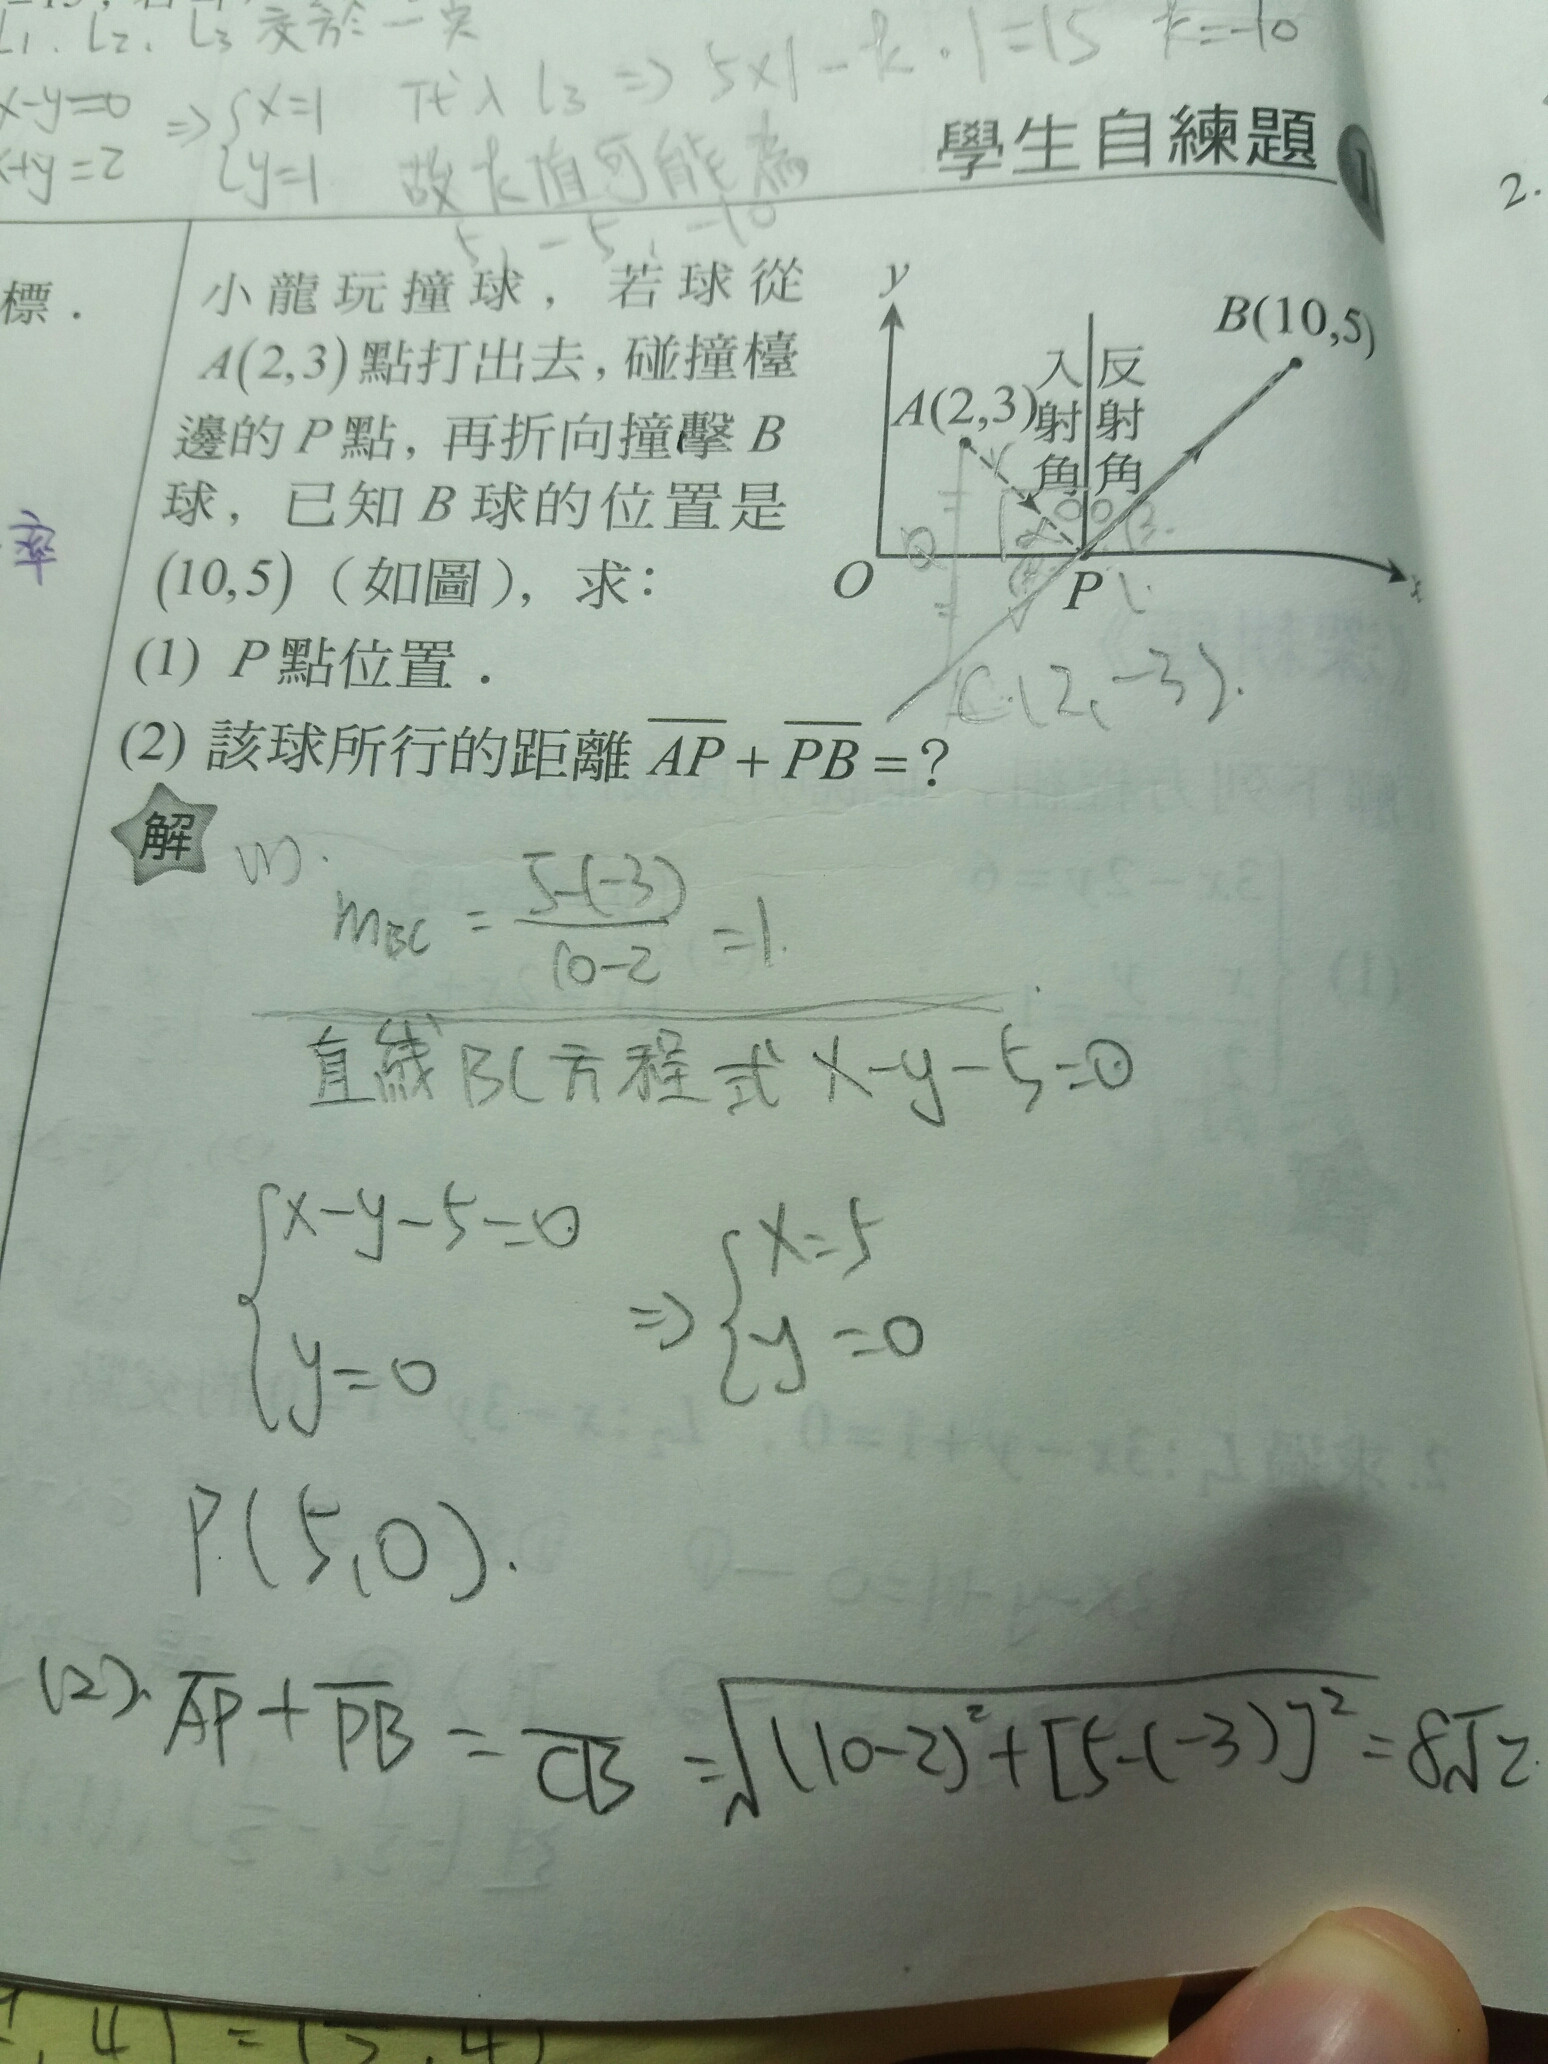 L1、L2、L3 交於一點
x-y=0 ⇒ {x=1 代入 L3 ⇒ 5×1-k·1=15 k=-10
x+y=2 {y=1 故k值可能為
5, -5, -10
學生自練題
1
2.
標.
率
小龍玩撞球，若球從
A(2,3)點打出去，碰撞檯
邊的P點，再折向撞擊B
球，已知B球的位置是
(10,5)（如圖），求：
(1) P點位置.
(2) 該球所行的距離 AP + PB = ?
y
B(10,5)
A(2,3)
入射角
反射角
O
P
x
C(2,-3).
解
(1).
mBC = 5-(-3)/10-2 = 1.
直線BC方程式 x-y-5=0
{x-y-5=0
y=0
⇒ {x=5
y=0
P(5,0).
(2). AP + PB = CB = √(10-2)²+[5-(-3)]² = 8√2.